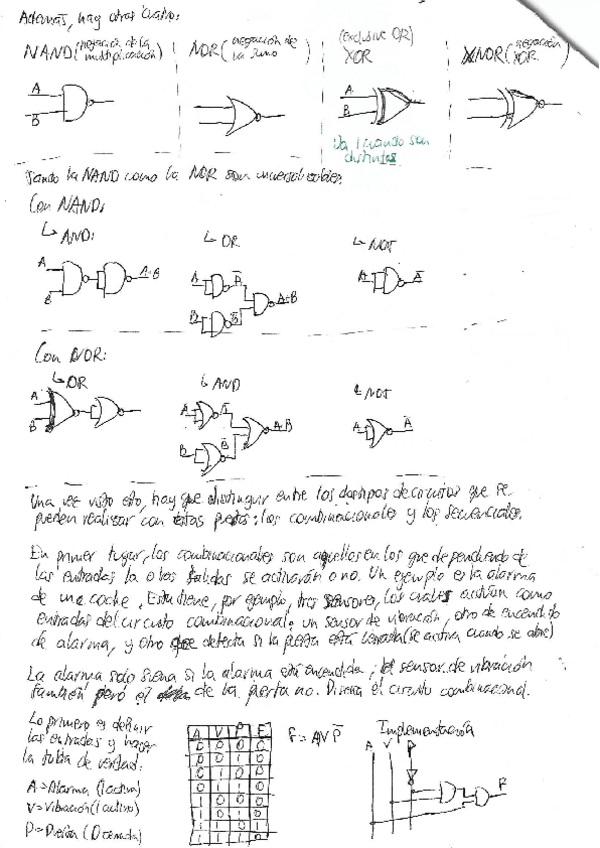 Además, hay otras cuatro:
NAND (negación de la multiplicación)
NOR (negación de la suma
(exclusive OR)
XOR
XNOR (negación XOR.
A
B
A
B
Da 1 cuando son distintas
Tanto la NAND como la NOR son universalizables.
Con NAND:
↳ AND:
↳ OR
↳ NOT
A
B
A·B
A
B
A̅
B̅
A+B
A
A̅
Con NOR:
↳ OR
↳ AND
↳ NOT
A
B
A
B
A̅
B̅
A·B
A
A̅
Una vez visto esto, hay que distinguir entre los dos tipos de circuitos que se
pueden realizar con estas puertas: los combinacionales y los secuenciales.
En primer lugar, los combinacionales son aquellos en los que dependiendo de
las entradas la o las salidas se activarán o no. Un ejemplo es la alarma
de un coche. Esta tiene, por ejemplo, tres sensores, los cuales actúan como
entradas del circuito combinacional: un sensor de vibración, otro de encendido
de alarma, y otro que detecta si la puerta está cerrada (se activa cuando se abre)
La alarma solo suena si la alarma está encendida, el sensor de vibración
también pero el de la puerta no. Diseña el circuito combinacional.
Lo primero es definir
las entradas y hacer
la tabla de verdad:
A → Alarma (1 activa)
V → Vibración (1 activo)
A V P F
0 0 0 0
0 0 1 0
0 1 0 0
0 1 1 0
F = AVP̅
Implementación
A V P
F